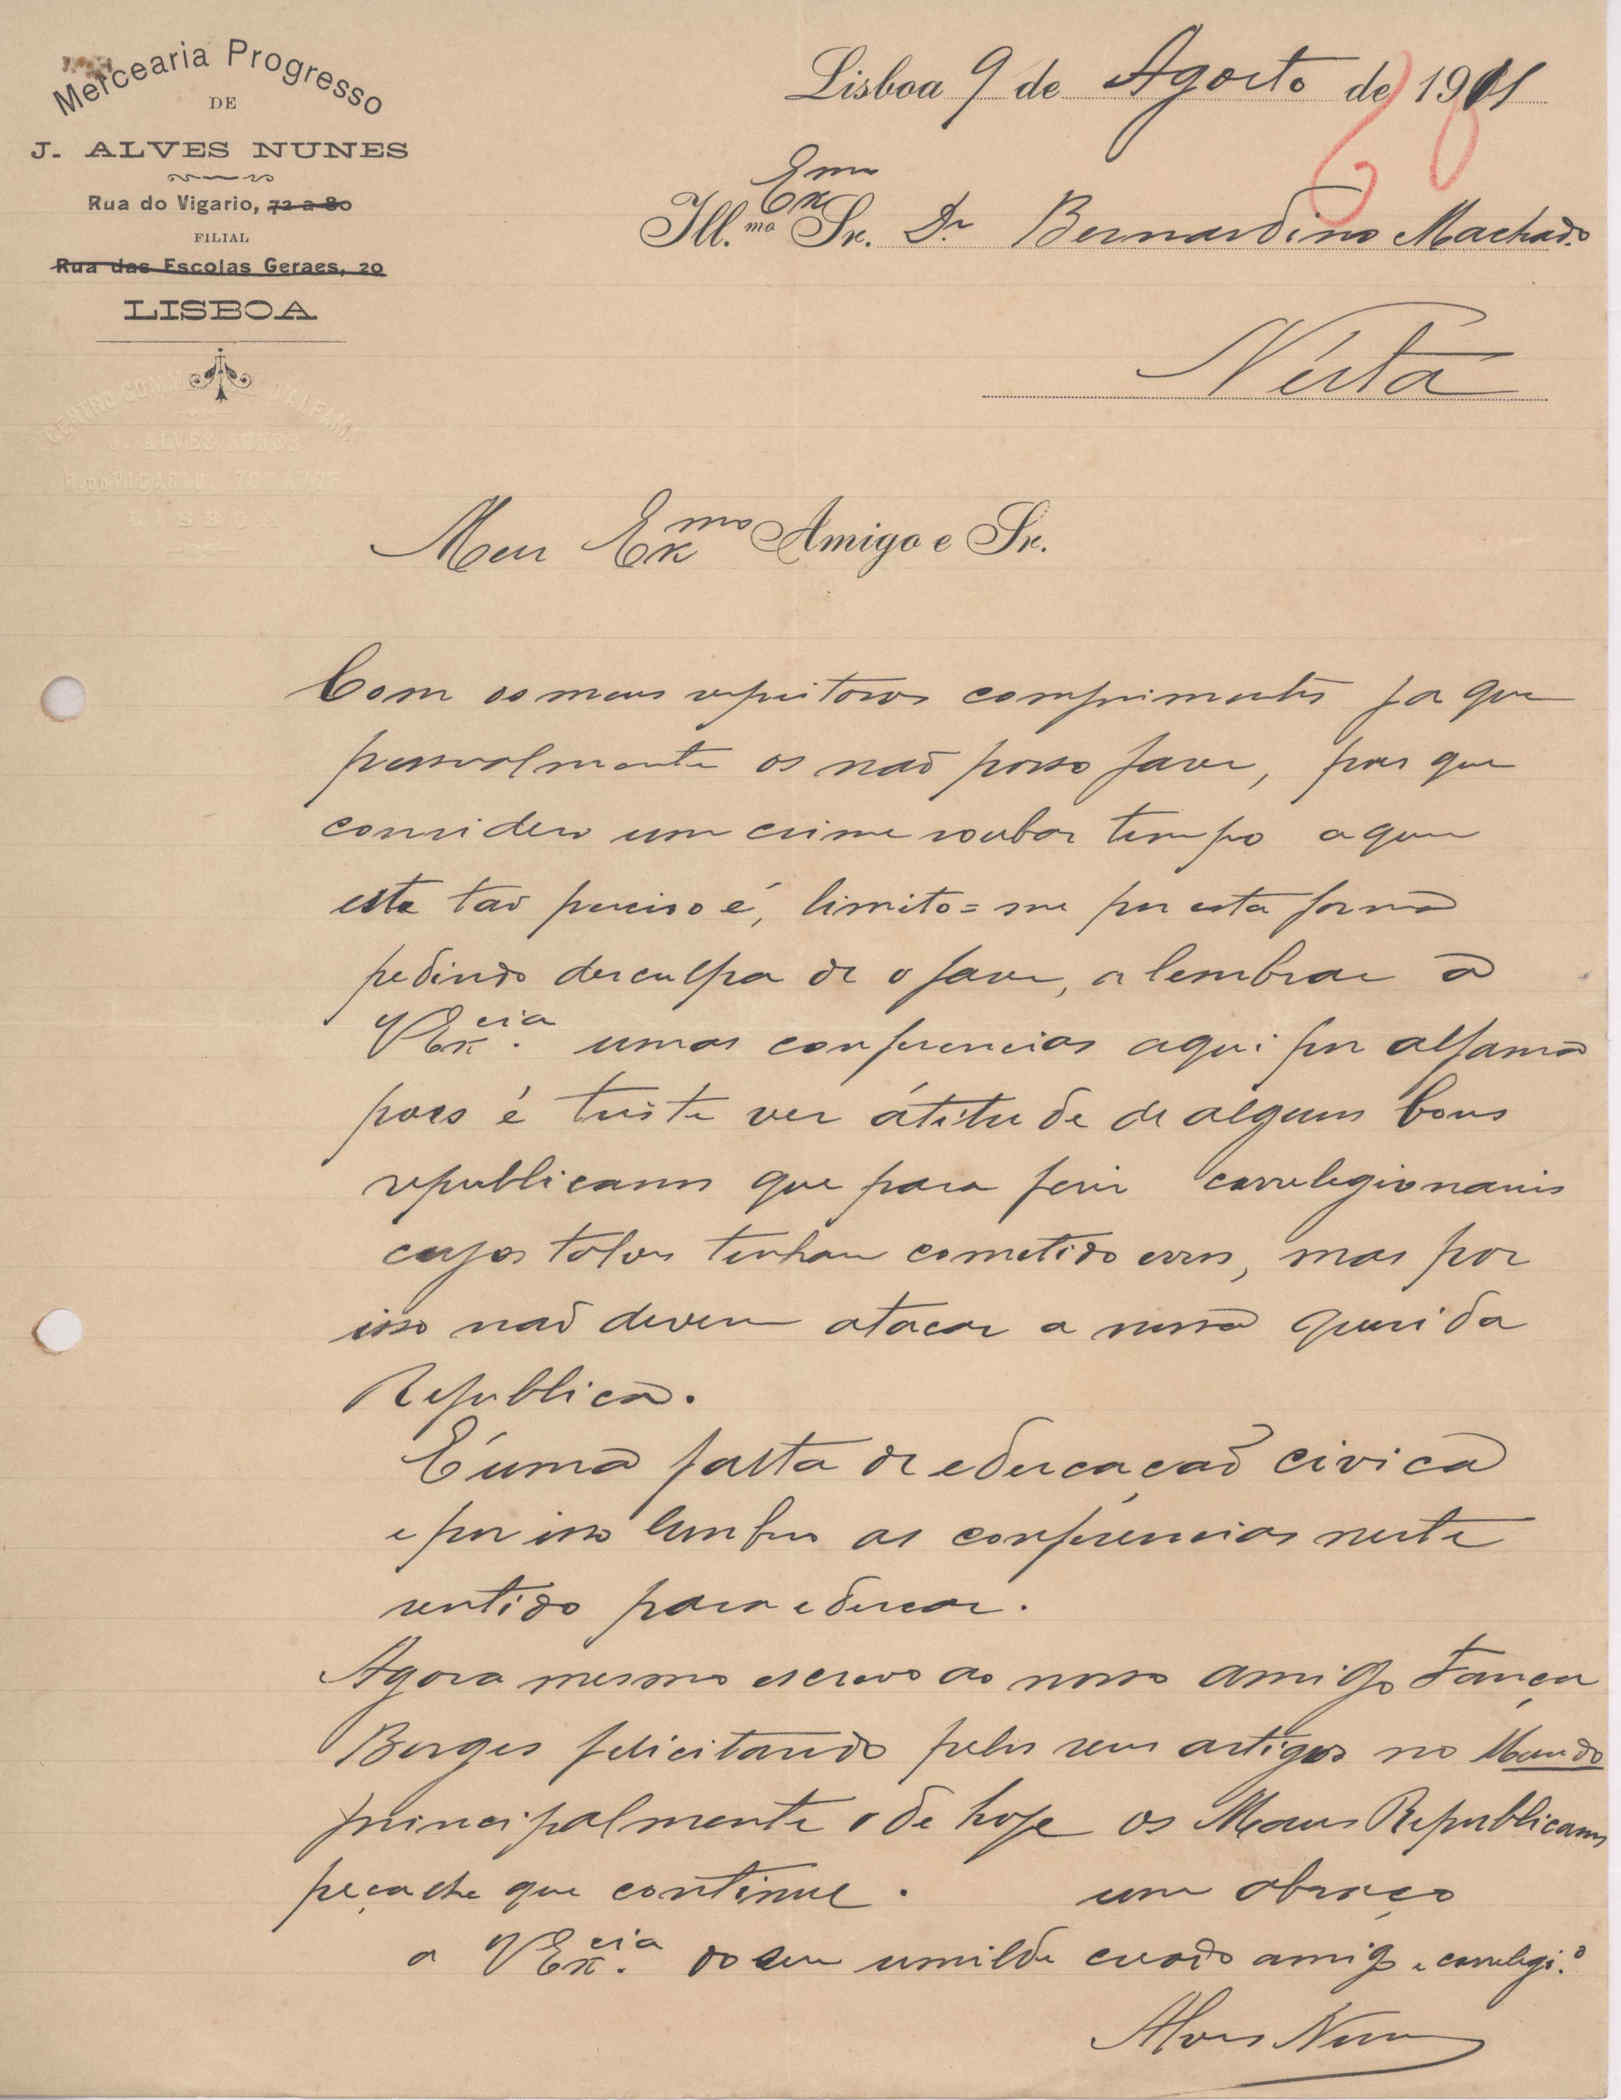 Mercearia Progresso
DE
J. ALVES NUNES
Rua do Vigario, 72 a 80
FILIAL
Rua das Escolas Geraes, 20
LISBOA
J. ALVES NUNES
LISBOA
Lisboa 9 de Agosto de 1911
Ill.mo Exmo Sr. Dr Bernardino Machado
Nésta
Meu Exmo Amigo e Sr.
Com os meus respeitosos comprimentos ja que
pessoalmente os naõ posso faser, pois que
considero um crime roubar tempo a quem
este taõ perciso é, limito=me por esta forma
pedindo desculpa de o faser, a lembrar a
VExcia. umas conferencias aqui por alfama
pois é triste ver átitude de alguns bons
republicanos que para ferir correlegionarios
cujos talves tenham cometido erros, mas por
isso naõ devem atacar a nossa querida
Republica.
É uma falta de educaçaõ civica
e por isso lembro as conferencias neste
sentido para educar.
Agora mesmo escrevo ao nosso amigo França
Borges felicitando pelos seus artigos no Mundo
principalmente o de hoje os Maus Republicanos
peçalhe que continue. um abraço
a VExcia. do seu umilde criado amigo e correlegi.o
Alves Nunes